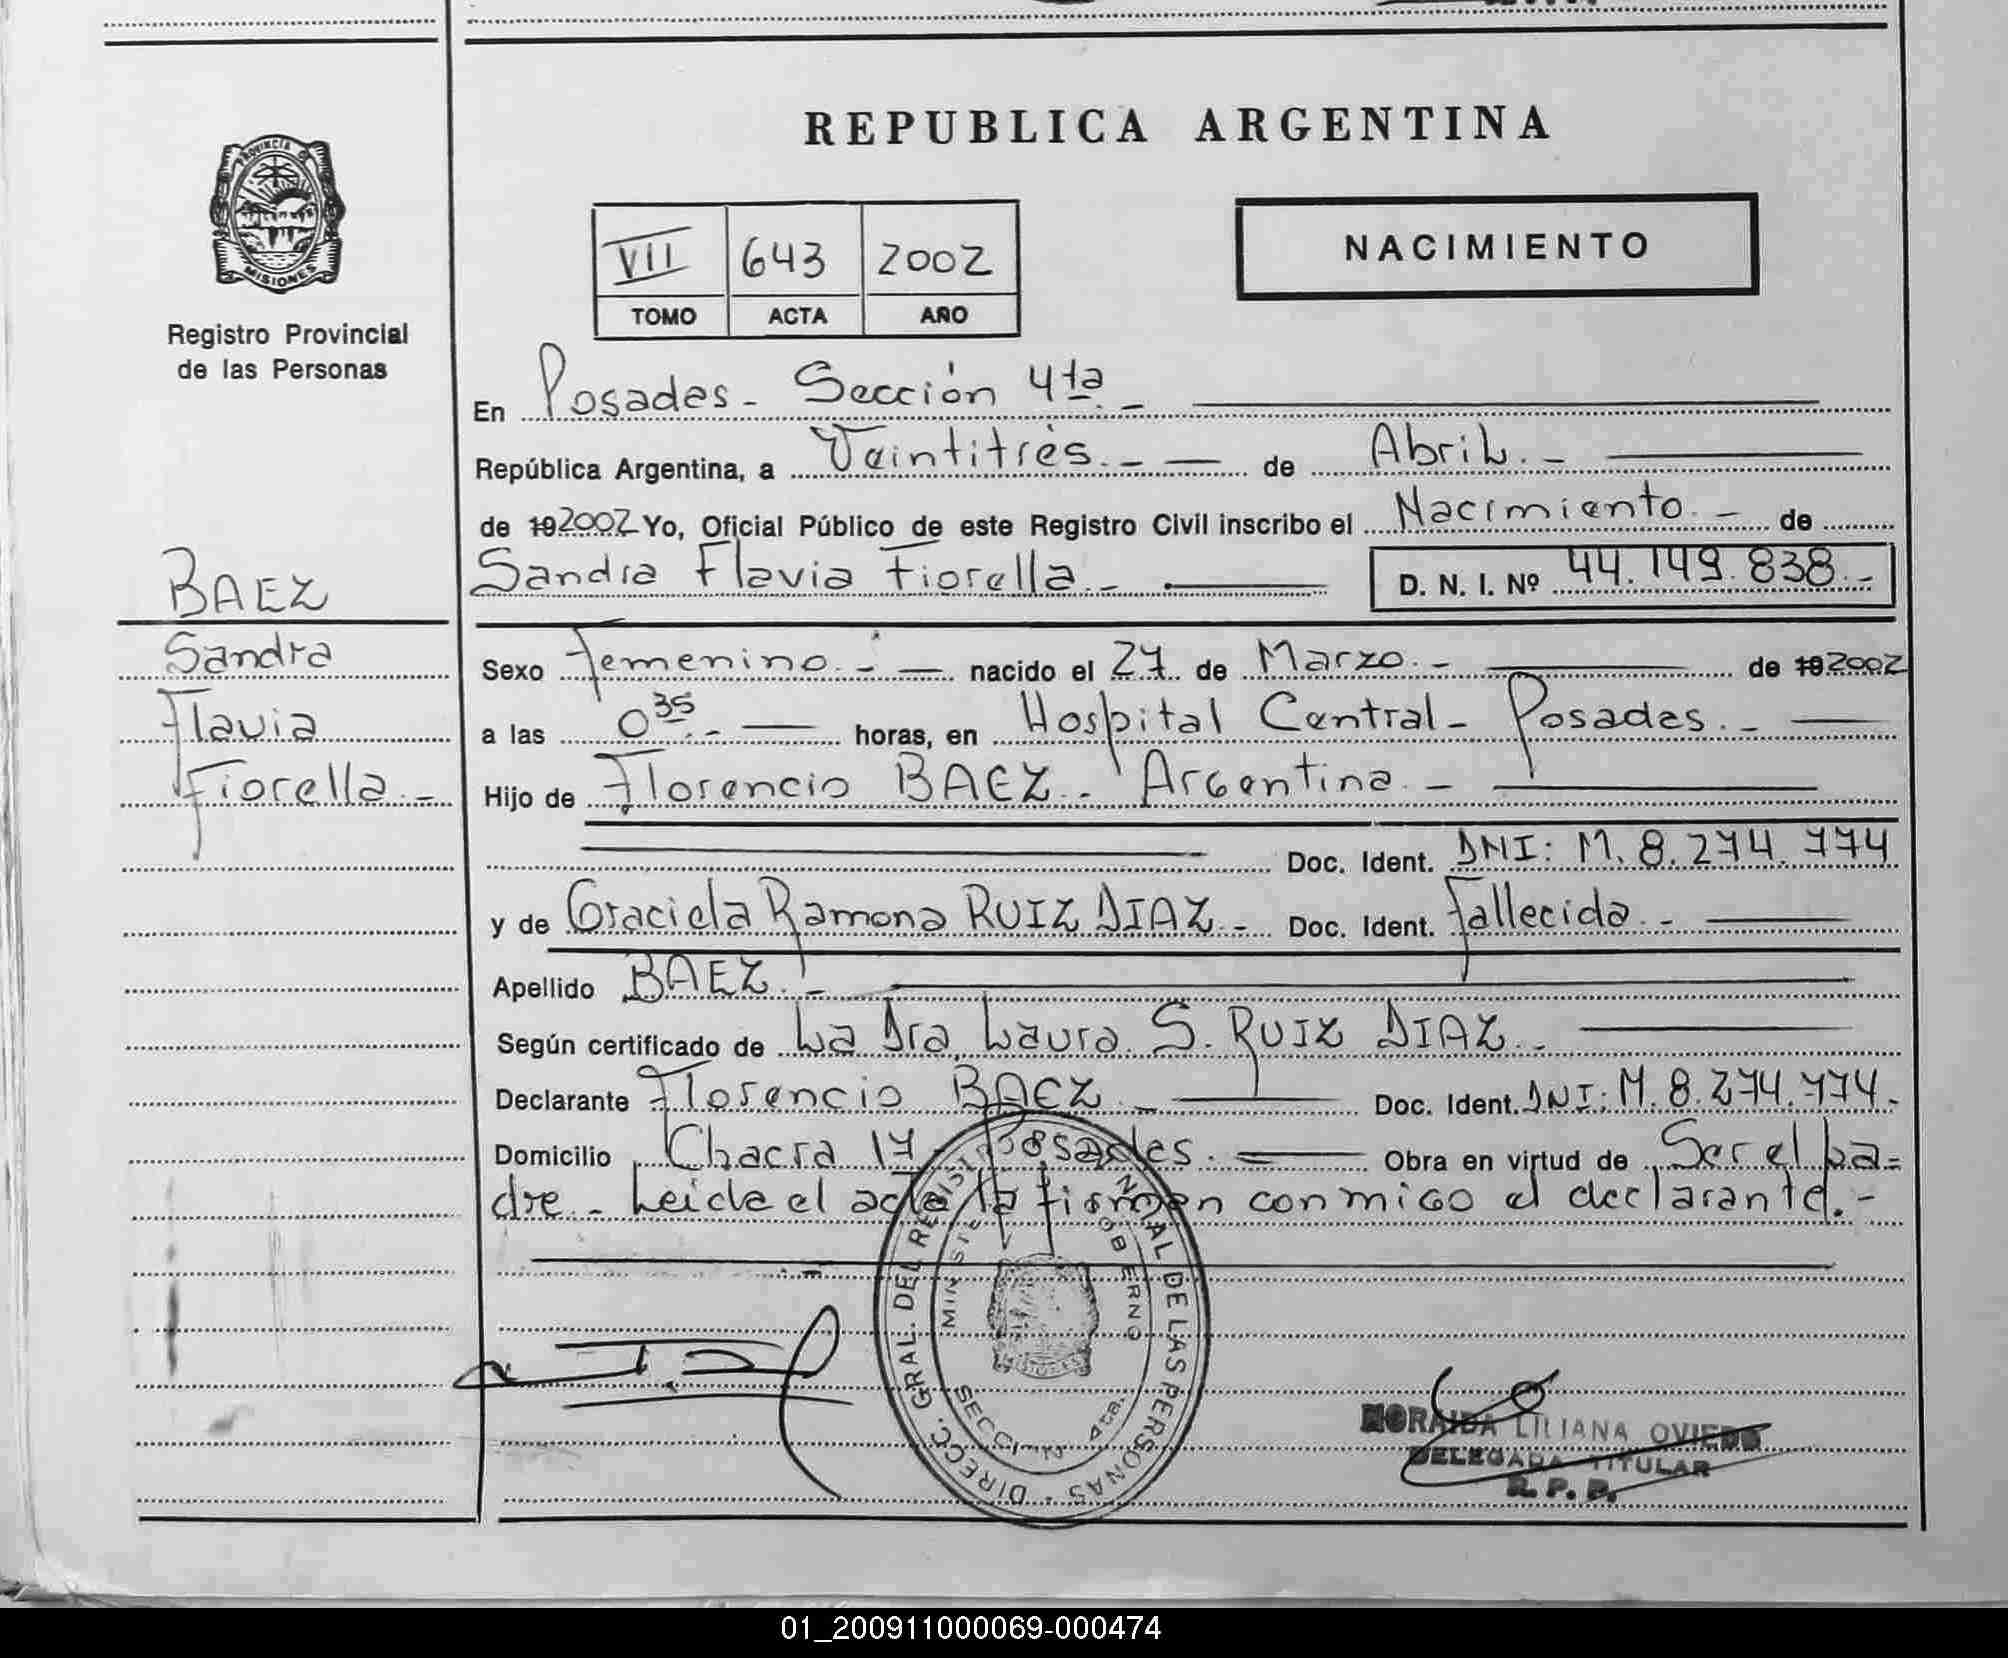 REPUBLICA ARGENTINA
PROVINCIA DE
MISIONES
Registro Provincial
de las Personas
VII 643 2002
TOMO ACTA AÑO
NACIMIENTO
En Posadas - Sección 4ta. -
República Argentina, a Veintitrés. - de Abril. -
de 192002 Yo, Oficial Público de este Registro Civil inscribo el Nacimiento. - de
Sandra Flavia Fiorella. - D. N. I. Nº 44.149.838. -
BAEZ
Sandra
Flavia
Fiorella. -
Sexo Femenino. - nacido el 27 de Marzo. - de 192002
a las 0 35. - horas, en Hospital Central - Posadas. -
Hijo de Florencio BAEZ. Argentina. -
Doc. Ident. DNI: M. 8.274.774
y de Graciela Ramona RUIZ DIAZ. - Doc. Ident. Fallecida. -
Apellido BAEZ. -
Según certificado de La Dra. Laura S. RUIZ DIAZ. -
Declarante Florencio BAEZ. - Doc. Ident. DNI: M. 8.274.774. -
Domicilio Chacra 17 - Posadas. - Obra en virtud de Ser el pa=
dre. - Leida el acta la firman conmigo el declarante. -
DIRECC. GRAL. DEL REGIST NCIAL DE LAS PERSONAS
MINISTE GOBIERNO
SECCION 4ta.
MISIONES
MORAIDA LILIANA OVIEDO
DELEGADA TITULAR
R. P. P.
01_200911000069-000474